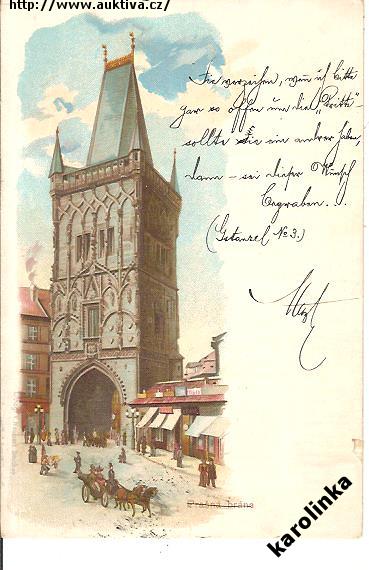 http://www.auktiva.cz/
Sie verzeihen, wenn ich bitte
gar so offen um die „Dritte"-
sollte Sie ein andrer haben,
dann - sei dieser Wunsch
begraben...
(Gstanzel No 3.)
Prašná brána
karolinka